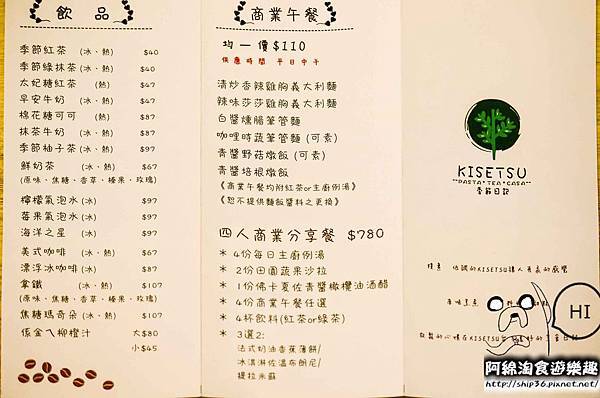 飲 品
季節紅茶 (冰、熱) $40
季節綠抹茶(冰、熱) $40
太妃糖紅茶 (熱) $67
早安牛奶 (冰、熱) $67
棉花糖可可 (熱) $87
抹茶牛奶 (冰、熱) $87
季節柚子茶(冰、熱) $97
鮮奶茶 (冰、熱) $67
(原味、焦糖、香草、榛果、玫瑰)
檸檬氣泡水(冰) $97
莓果氣泡水(冰) $97
海洋之星 (冰) $97
美式咖啡 (冰、熱) $67
漂浮冰咖啡(冰) $87
拿鐵 (冰、熱) $107
(原味、焦糖、香草、榛果、玫瑰)
焦糖瑪奇朵 (冰、熱) $107
係金ㄟ柳橙汁 大$80
小$45
商業午餐
均一價$110
供應時間 平日中午
清炒香辣雞胸義大利麵
辣味莎莎雞胸義大利麵
白醬燻腸筆管麵
咖哩時蔬筆管麵(可素)
青醬野菇燉飯(可素)
青醬培根燉飯
《商業午餐均附紅茶or主廚例湯》
《恕不提供麵飯醬料之更換》
四人商業分享餐 $780
* 4份每日主廚例湯
* 2份田園蔬果沙拉
* 1份佛卡夏佐青醬橄欖油酒醋
* 4份商業午餐任選
* 4杯飲料(紅茶or綠茶)
* 3選2:
法式奶油香蕉薄餅/
冰淇淋佐溫布朗尼/
提拉米蘇
KISETSU
"PASTA*TEA*CASA"
季節日記
HI
阿綿淘食遊樂趣
http://ship36.pixnet.net/blog